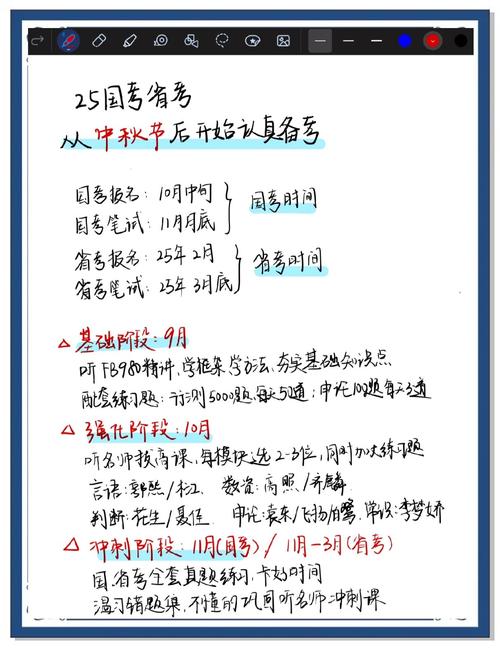 25国考省考
从中秋节后开始认真备考
国考报名：10月中旬
国考笔试：11月月底
国考时间
省考报名：25年2月
省考笔试：25年3月底
省考时间
△基础阶段：9月
听FB980精讲，学框架学方法，夯实基础知识点
配套练习题：行测5000题每天5道；申论100题每天3道
△强化阶段：10月
听名师拔高课，每模块选2-3位，同时加大练习题
言语：郭熙/ 数资：高照/齐麟
判断：花生/聂佳 申论：袁东/飞扬/白鹭 常识：李梦娇
△冲刺阶段：11月(国考)/11月-3月(省考)
国、省考全套真题练习，卡好时间
温习错题集，不懂的巩固听名师冲刺课